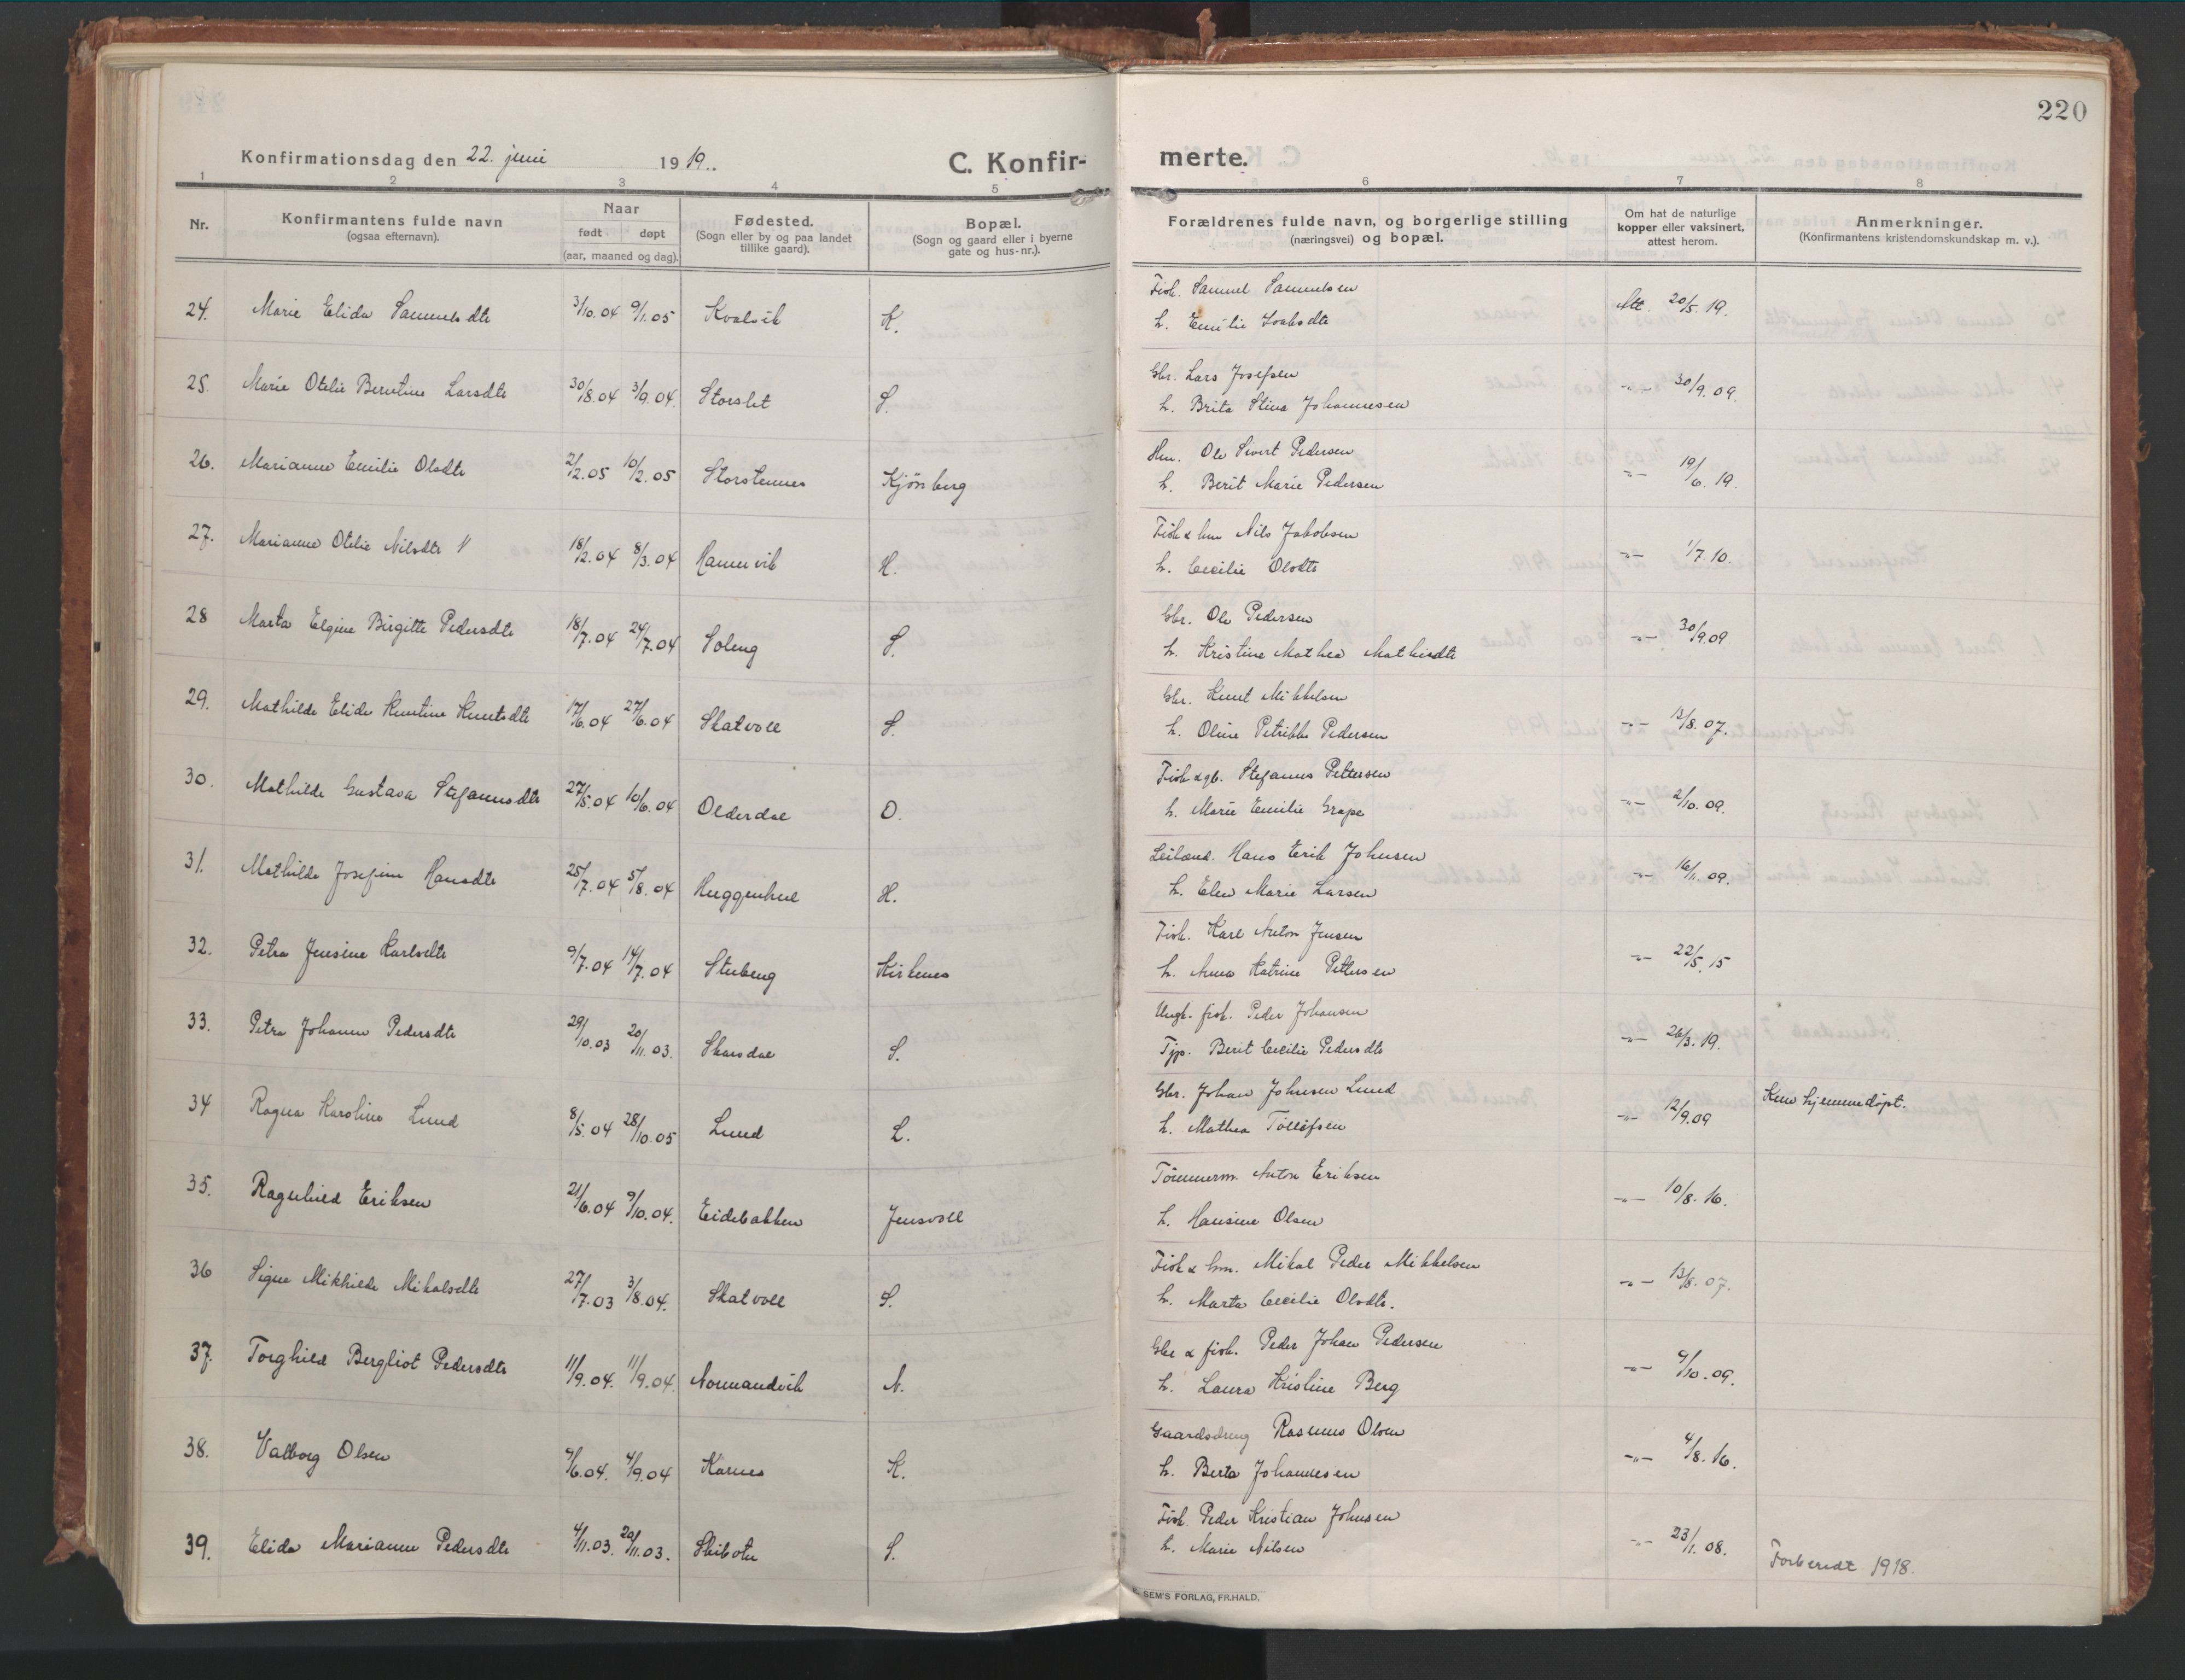 220
Konfirmationsdag den 22. juni 1919.
C. Konfirmerte.
1 2 3 4 5 6 7 8
Nr. Konfirmantens fulde navn (ogsaa efternavn). Naar født døpt (aar, maaned og dag). Fødested. (Sogn eller by og paa landet tillike gaard). Bopæl. (Sogn og gaard eller i byerne gate og hus-nr.). Forældrenes fulde navn, og borgerlige stilling (næringsvei) og bopæl. Om hat de naturlige kopper eller vaksinert, attest herom. Anmerkninger. (Konfirmantens kristendomskundskap m. v.).
24. Marie Elida Samuelsdtr 3/10.04 9/1.05 Kvalvik K. Fisk. Samuel Samuelsen Att. 20/5.19.
h. Emilie Isaksdtr
25. Marie Otelie Berntine Larsdtr 30/8.04 3/9.04. Storslet S. Gbr. Lars Josefsen -"- 30/9.09.
h. Brita Stina Johannesen
26. Marianne Emilie Olsdtr 2/2.05 10/2.05 Storstennes Kjønberg Hm. Ole Sivert Pedersen -"- 19/6.19.
h. Berit Marie Pedersen
27. Marianne Otelie Nilsdtr 18/2.04 8/3.04 Hannvik H. Fisk & hm Nils Jakobsen -"- 1/7.10.
h. Cecilie Olsdtr
28 Marta Elgine Birgitte Pedersdtr 18/7.04 24/7.04 Soleng S. Gbr. Ole Pedersen -"- 30/9.09
h. Kristine Mathea Mathisdtr
29. Mathilde Elida Knutine Knutsdtr 17/6.04 27/6.04 Skatvoll S. Gbr. Knut Mikkelsen -"- 13/8.07.
h. Oline Petrikke Pedersen
30. Mathilde Gustava Stefanusdtr 27/5.04 10/6.04 Olderdal O. Fisk & gb. Stefanus Pettersen -"- 2/10.09.
h. Marie Emilie Grape
31. Mathilde Josefine Hansdtr 25/7.04 5/8.04 Huggenhul H. Leilænd. Hans Erik Johnsen -"- 16/11.09.
h. Elen Marie Larsen
32. Petra Jensine Karlsdtr 9/7.04 14/7.04 Stubeng Kirkenes Fisk. Karl Anton Jensen -"- 22/5.15
h. Anna Katrine Pettersen
33. Petra Johanne Pedersdtr 29/10.03 20/11.03. Skarsdal S. Ungk. fisk. Peder Johansen -"- 26/3.19.
Tjp. Berit Cecilie Pedersdtr
34 Ragna Karoline Lund 8/5.04 28/10.05 Lund L. Gbr. Johan Johnsen Lund -"- 12/9.09 Kun hjemmedöpt.
h. Mathea Tollöfsen
35. Ragnhild Eriksen 21/6.04 9/10.04. Eidebakken Jensvoll Tömmerm. Anton Eriksen -"- 10/8.16.
h. Hansine Olsen
36 Signe Mikhilde Mikalsdtr 27/7.03 3/8.04. Skatvoll S. Fisk & hm. Mikal Peder Mikkelsen -"- 13/8.07.
h. Marta Cecilie Olsdtr.
37. Torghild Bergliot Pedersdtr 11/9.04. 11/9.04. Normandvik N. Gbr & fisk. Peder Johan Pedersen -"- 9/10.09.
h. Laura Kristine Berg
38. Valborg Olsen 9/6.04. 4/9.04 Karnes K. Gaardsdreng Rasmus Olsen -"- 4/8.16.
h. Berta Johannesen
39. Elida Marianne Pedersdtr 4/11.03. 20/11.03. Skibotn S. Fisk. Peder Kristian Johnsen -"- 23/1.08.
h. Marie Nilsen Forberedt 1918.
SEM'S FORLAG, FR.HALD.